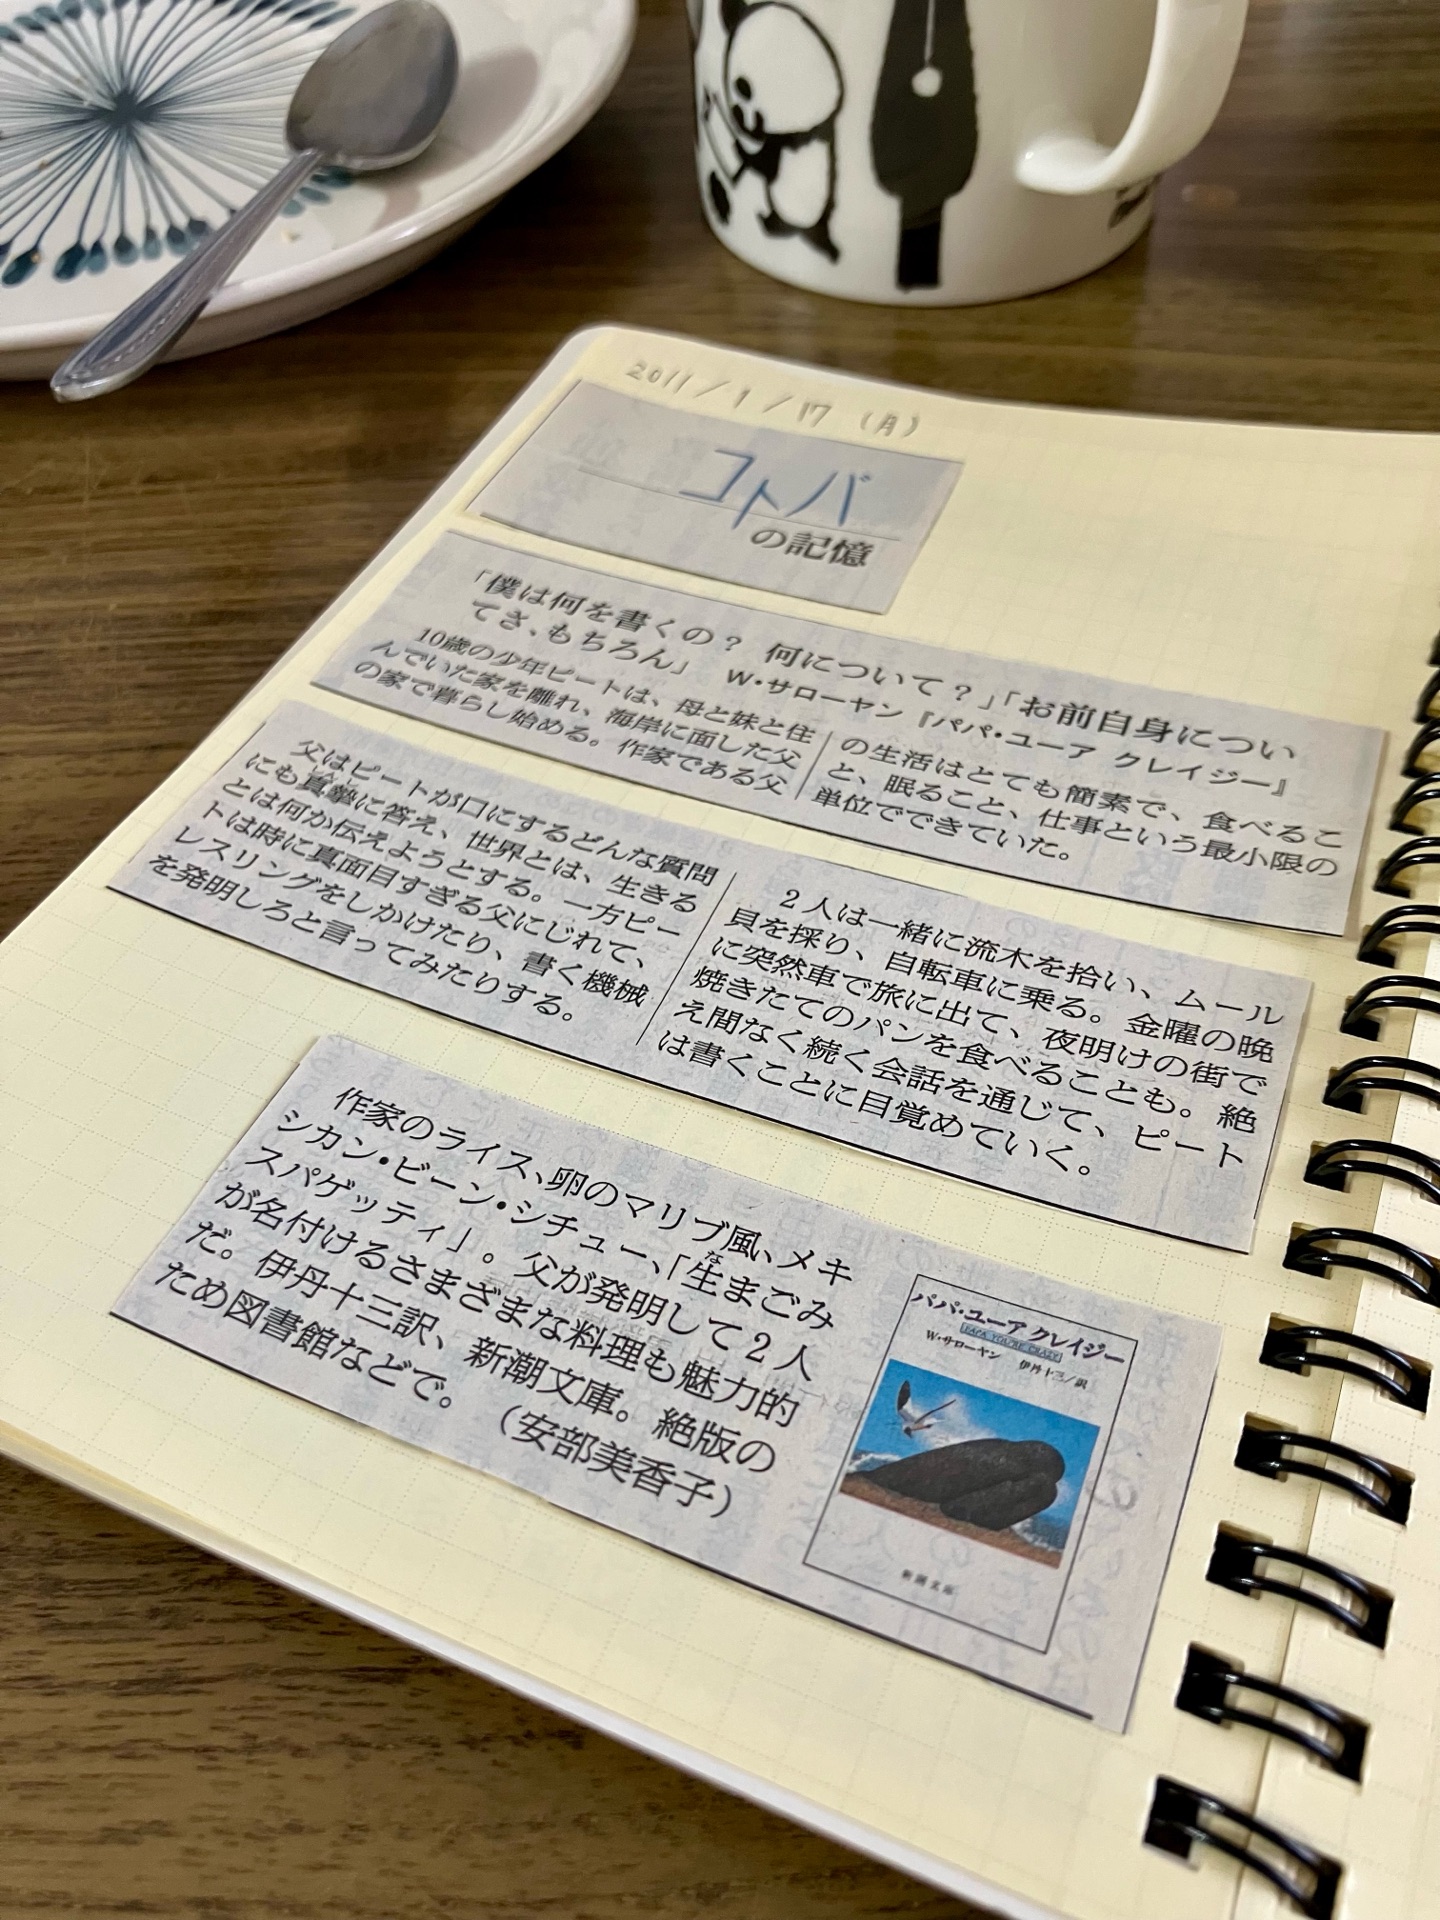 2011/1/17 (月)
コトバ
の記憶
「僕は何を書くの？ 何について？」「お前自身につい
てさ、もちろん」 W・サローヤン『パパ・ユーア クレイジー』
10歳の少年ピートは、母と妹と住
んでいた家を離れ、海岸に面した父
の家で暮らし始める。作家である父
の生活はとても簡素で、食べるこ
と、眠ること、仕事という最小限の
単位でできていた。
父はピートが口にするどんな質問
にも真摯に答え、世界とは、生きる
とは何か伝えようとする。一方ピー
トは時に真面目すぎる父にじれて、
レスリングをしかけたり、書く機械
を発明しろと言ってみたりする。
2人は一緒に流木を拾い、ムール
貝を採り、自転車に乗る。金曜の晩
に突然車で旅に出て、夜明けの街で
焼きたてのパンを食べることも。絶
え間なく続く会話を通じて、ピート
は書くことに目覚めていく。
作家のライス、卵のマリブ風、メキ
シカン・ビーン・シチュー、「生まごみ
スパゲッティ」。父が発明して2人
が名付けるさまざまな料理も魅力的
だ。伊丹十三訳、新潮文庫。絶版の
ため図書館などで。（安部美香子）
パパ・ユーア クレイジー
PAPA YOU'RE CRAZY
W・サローヤン 伊丹十三/訳
新潮文庫